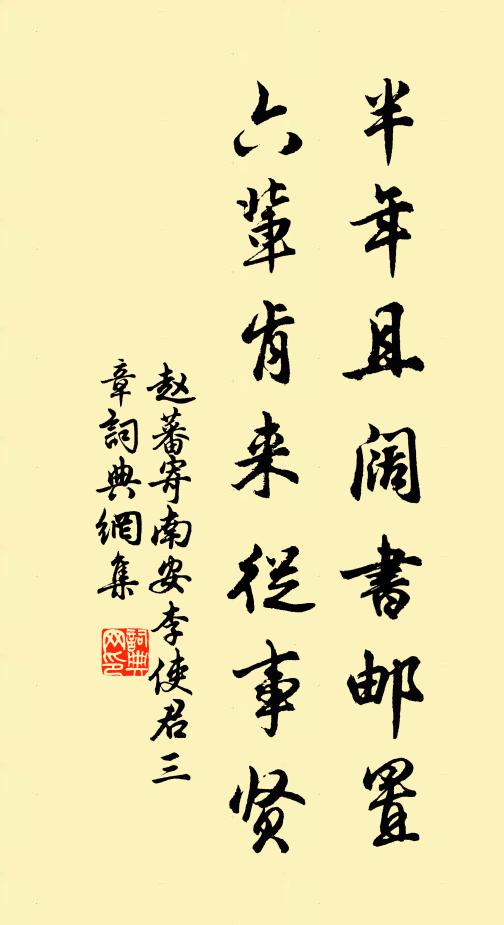 半年且阔書邮置
六輩肯来從事贤
赵蕃寄南安李使君三
章詞典網集
詞典网印